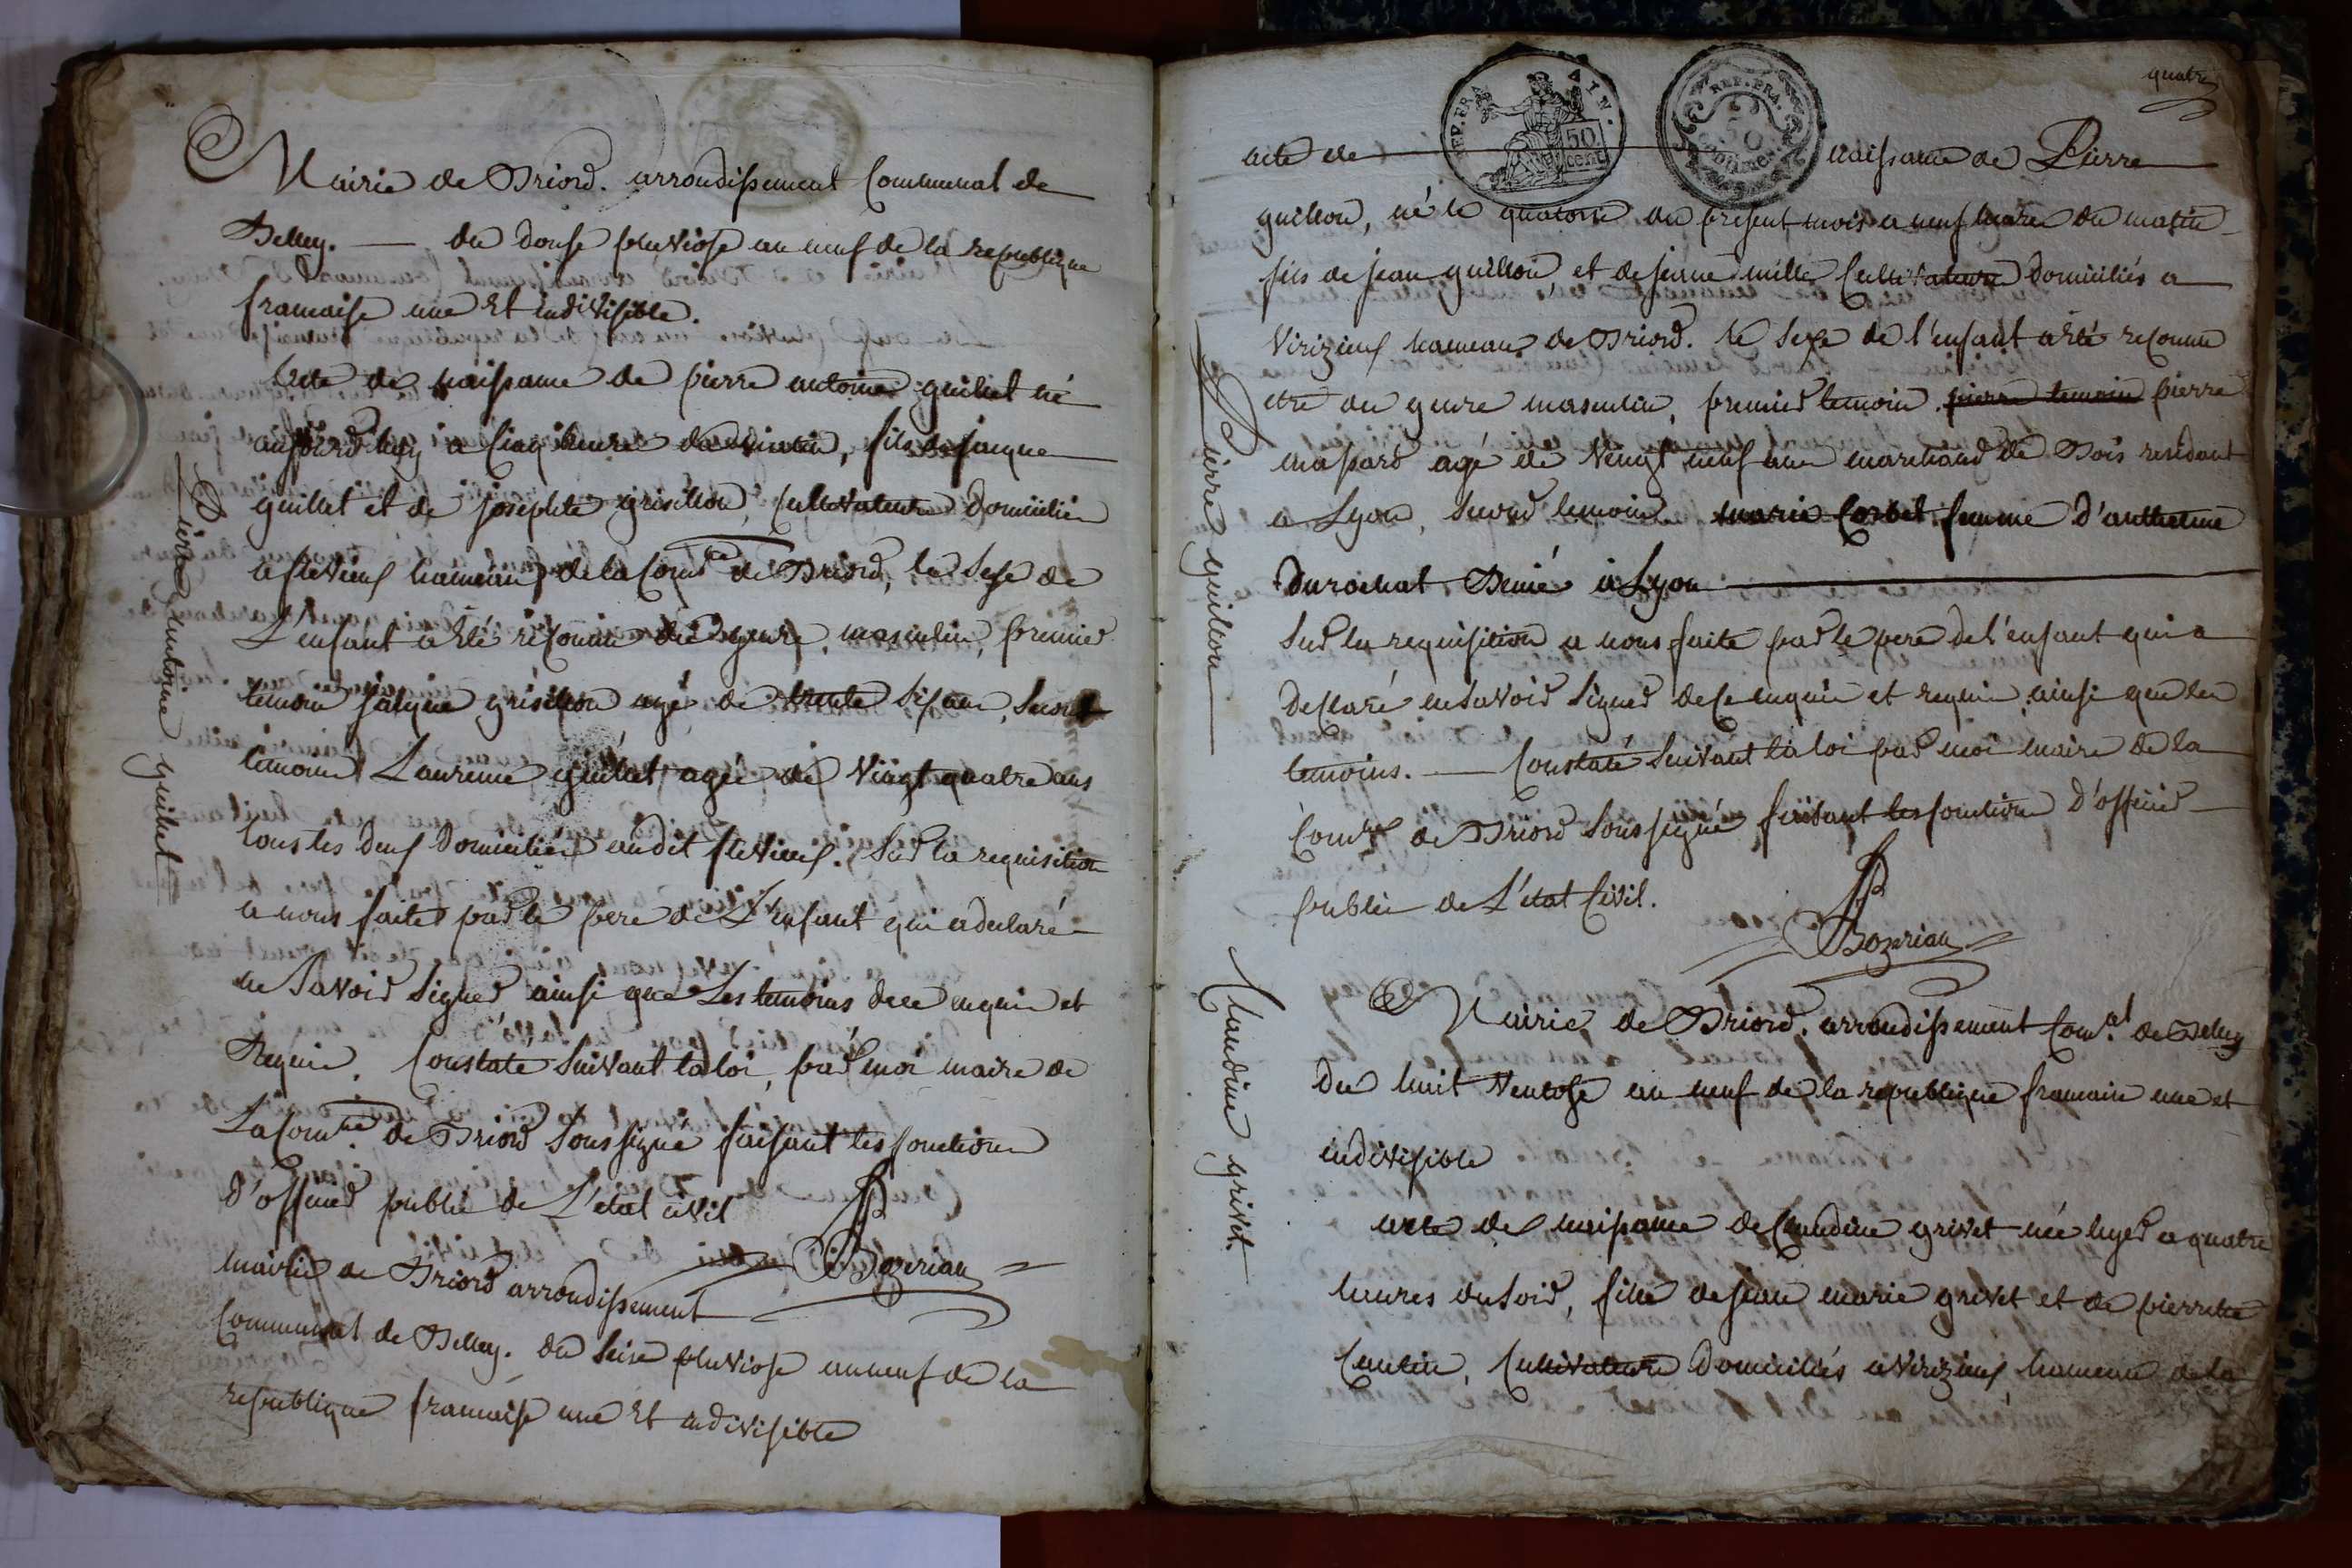 Mairie de Briord. arrondissement Communal de
Belley. — du douse pluviose an neuf de la republique
francaise une et indivisible.
Acte de naissance de pierre antoine guillet né
aujourd'huy a cinq heure du matin, fils de jaque
guillet et de josephte grisillon, cultivateurs domicilies
a flevieux hameau de la comne de Briord, le sexe de
L'enfant a été reconnu du genre masculin, premier
temoin jaque grisillon agé de trente six ans, second
temoin Laurence guillet agée de vingt quatre ans
tous les deux domiciliés audit flevieux. Sur la requisition
a nous faite par le pere de L'enfant qui a declaré
ne savoir signer ainsi que les temoins de ce enquis et
Requis. Constaté suivant la loi, par moi maire de
La comne de Briord soussigné faisant les fonctions
d'officier public de L'etat civil
Bozerian
mairie de Briord arrondissement
communal de Belley. du seise pluviose an neuf de la
republique francaise une et indivisible
Pierre antoine guillet
quatre
REP. FRA. AIN.
50 cent
REP. FRA.
50
acte de naissance de Pierre
guillon, né le quatorse du present mois a neuf heures du matin
fils de jean guillon, et de jeanne mille cultivateurs domiciliés a
Virizieux hameau de Briord. le sexe de l'enfant a été reconnu
etre du genre masculin, premier temoin pierre temoin pierre
masard agé de vingt neuf ans marchand de Bois residant
a Lyon, second temoin marie Corbet femme d'anthelme
Durochat à Lyon
Sur la requisition a nous faite par le pere de l'enfant qui a
declaré ne savoir signer de ce enquis et requis, ainsi que les
temoins. — Constaté suivant la loi par moi maire de la
comne de Briord soussigné faisant les fonctions d'officier
public de L'etat civil.
Bozerian
Pierre guillon
Mairie de Briord, arrondissement comal de Belley
Du huit ventose an neuf de la republique francaise une et
indivisible
acte de naissance de Claudine grivet née hyer a quatre
heures du soir, fille de jean marie grivet et de pierrette
cultivateurs domiciliés a Virizieux, hameau de la
Claudine grivet